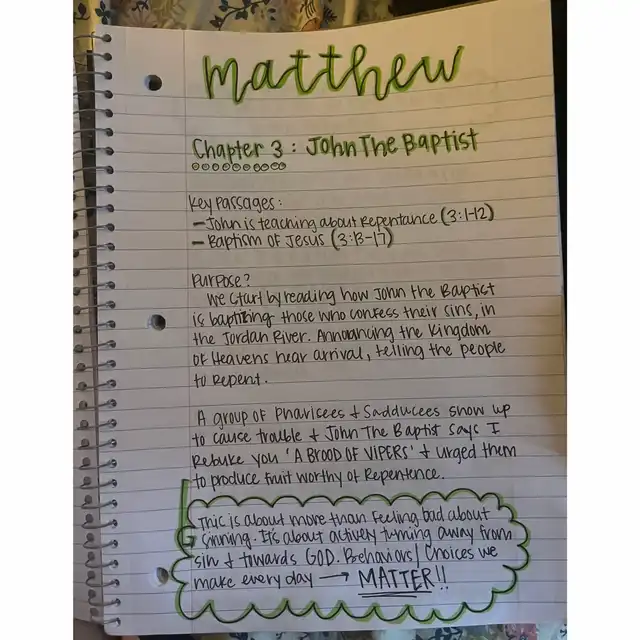 Matthew
Chapter 3: John The Baptist
Key Passages:
- John is teaching about Repentance (3:1-12)
- Baptism of Jesus (3:13-17)
Purpose?
We start by reading how John the Baptist
is baptizing those who confess their sins, in
the Jordan River. Announcing the Kingdom
of Heavens near arrival, telling the people
to repent.
A group of Pharisees + Sadducees show up
to cause trouble + John The Baptist says I
Rebuke you 'A BROOD OF VIPERS' + urged them
to produce fruit worthy of Repentence.
This is about more than feeling bad about
sinning. It's about actively turning away from
sin + towards GOD. Behaviors/Choices we
make every day → MATTER!!